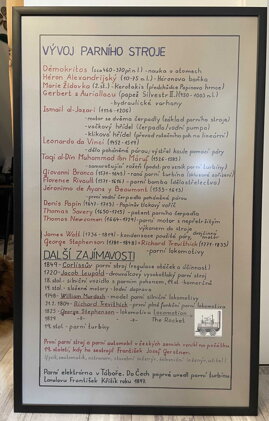 VÝVOJ PARNÍHO STROJE
Démokritos (cca 460-370 př.n.l.) - nauka o atomech
Héron Alexandrijský (10-75 n.l.) - Heronova baňka
Marie Židovka (2.st.) - Kerotakis (předchůdce Papinova hrnce)
Gerbert z Aurillacu (papež Silvestr II.) (930-1003 n.l.)
- hydraulické varhany
Ismail al-Jazari (1136-1206)
- motor se dvěma čerpadly (základ parního stroje)
- vačkový hřídel (čerpadla/vodní pumpa)
- kliková hřídel (převod rotačního poh. na lineární)
Leonardo da Vinci (1452-1519)
- dělo poháněné párou, výstřel koule pomocí páry
Taqi al-Din Muhammad ibn Ma'ruf (1526-1585)
- samorotující rožeň (později první parní turbína)
Giovanni Branca (1571-1645) - raná parní turbína
Florence Rivault (1571-1616) - parní bomba (dělostřelectvo)
Jéronimo de Ayanz y Beaumont (1553-1613)
- první vodní čerpadlo poháněné párou
Denis Papin (1647-1713) - Papinův tlakový vařič
Thomas Savery (1650-1715) - patent parního čerpadla
Thomas Newcomen (1664-1729) - parní motor s největším
výkonem do stroje
James Watt (1736-1819) - kondenzace použité páry,
George Stephenson (1781-1848) Richard Trevithick (1771-1833)
DALŠÍ ZAJÍMAVOSTI
1849 - Corlissův parní stroj (regulace otáček a účinnost)
1720 - Jacob Leupold - dvouválcový vysokotlaký parní stroj
18. stol. - silniční vozidla s parním pohonem, 19. st. - komerčně
19. stol. - složené motory - lodní doprava
1748 - William Murdoch - model parní silniční lokomotivy
21.2. 1804 - Richard Trevithick - první plně funkční parní lokomotiva
1825 - George Stephenson - lokomotiva Locomotion
1829 - The Rocket
19. stol. - parní turbíny
První parní stroj a parní automobil v českých zemích vznikl na počátku
19. století, kdy ho sestrojil František Josef Gerstner.
Parní elektrárna v Táboře. Do Čech poprvé uvedl parní turbínu
František Křižík roku